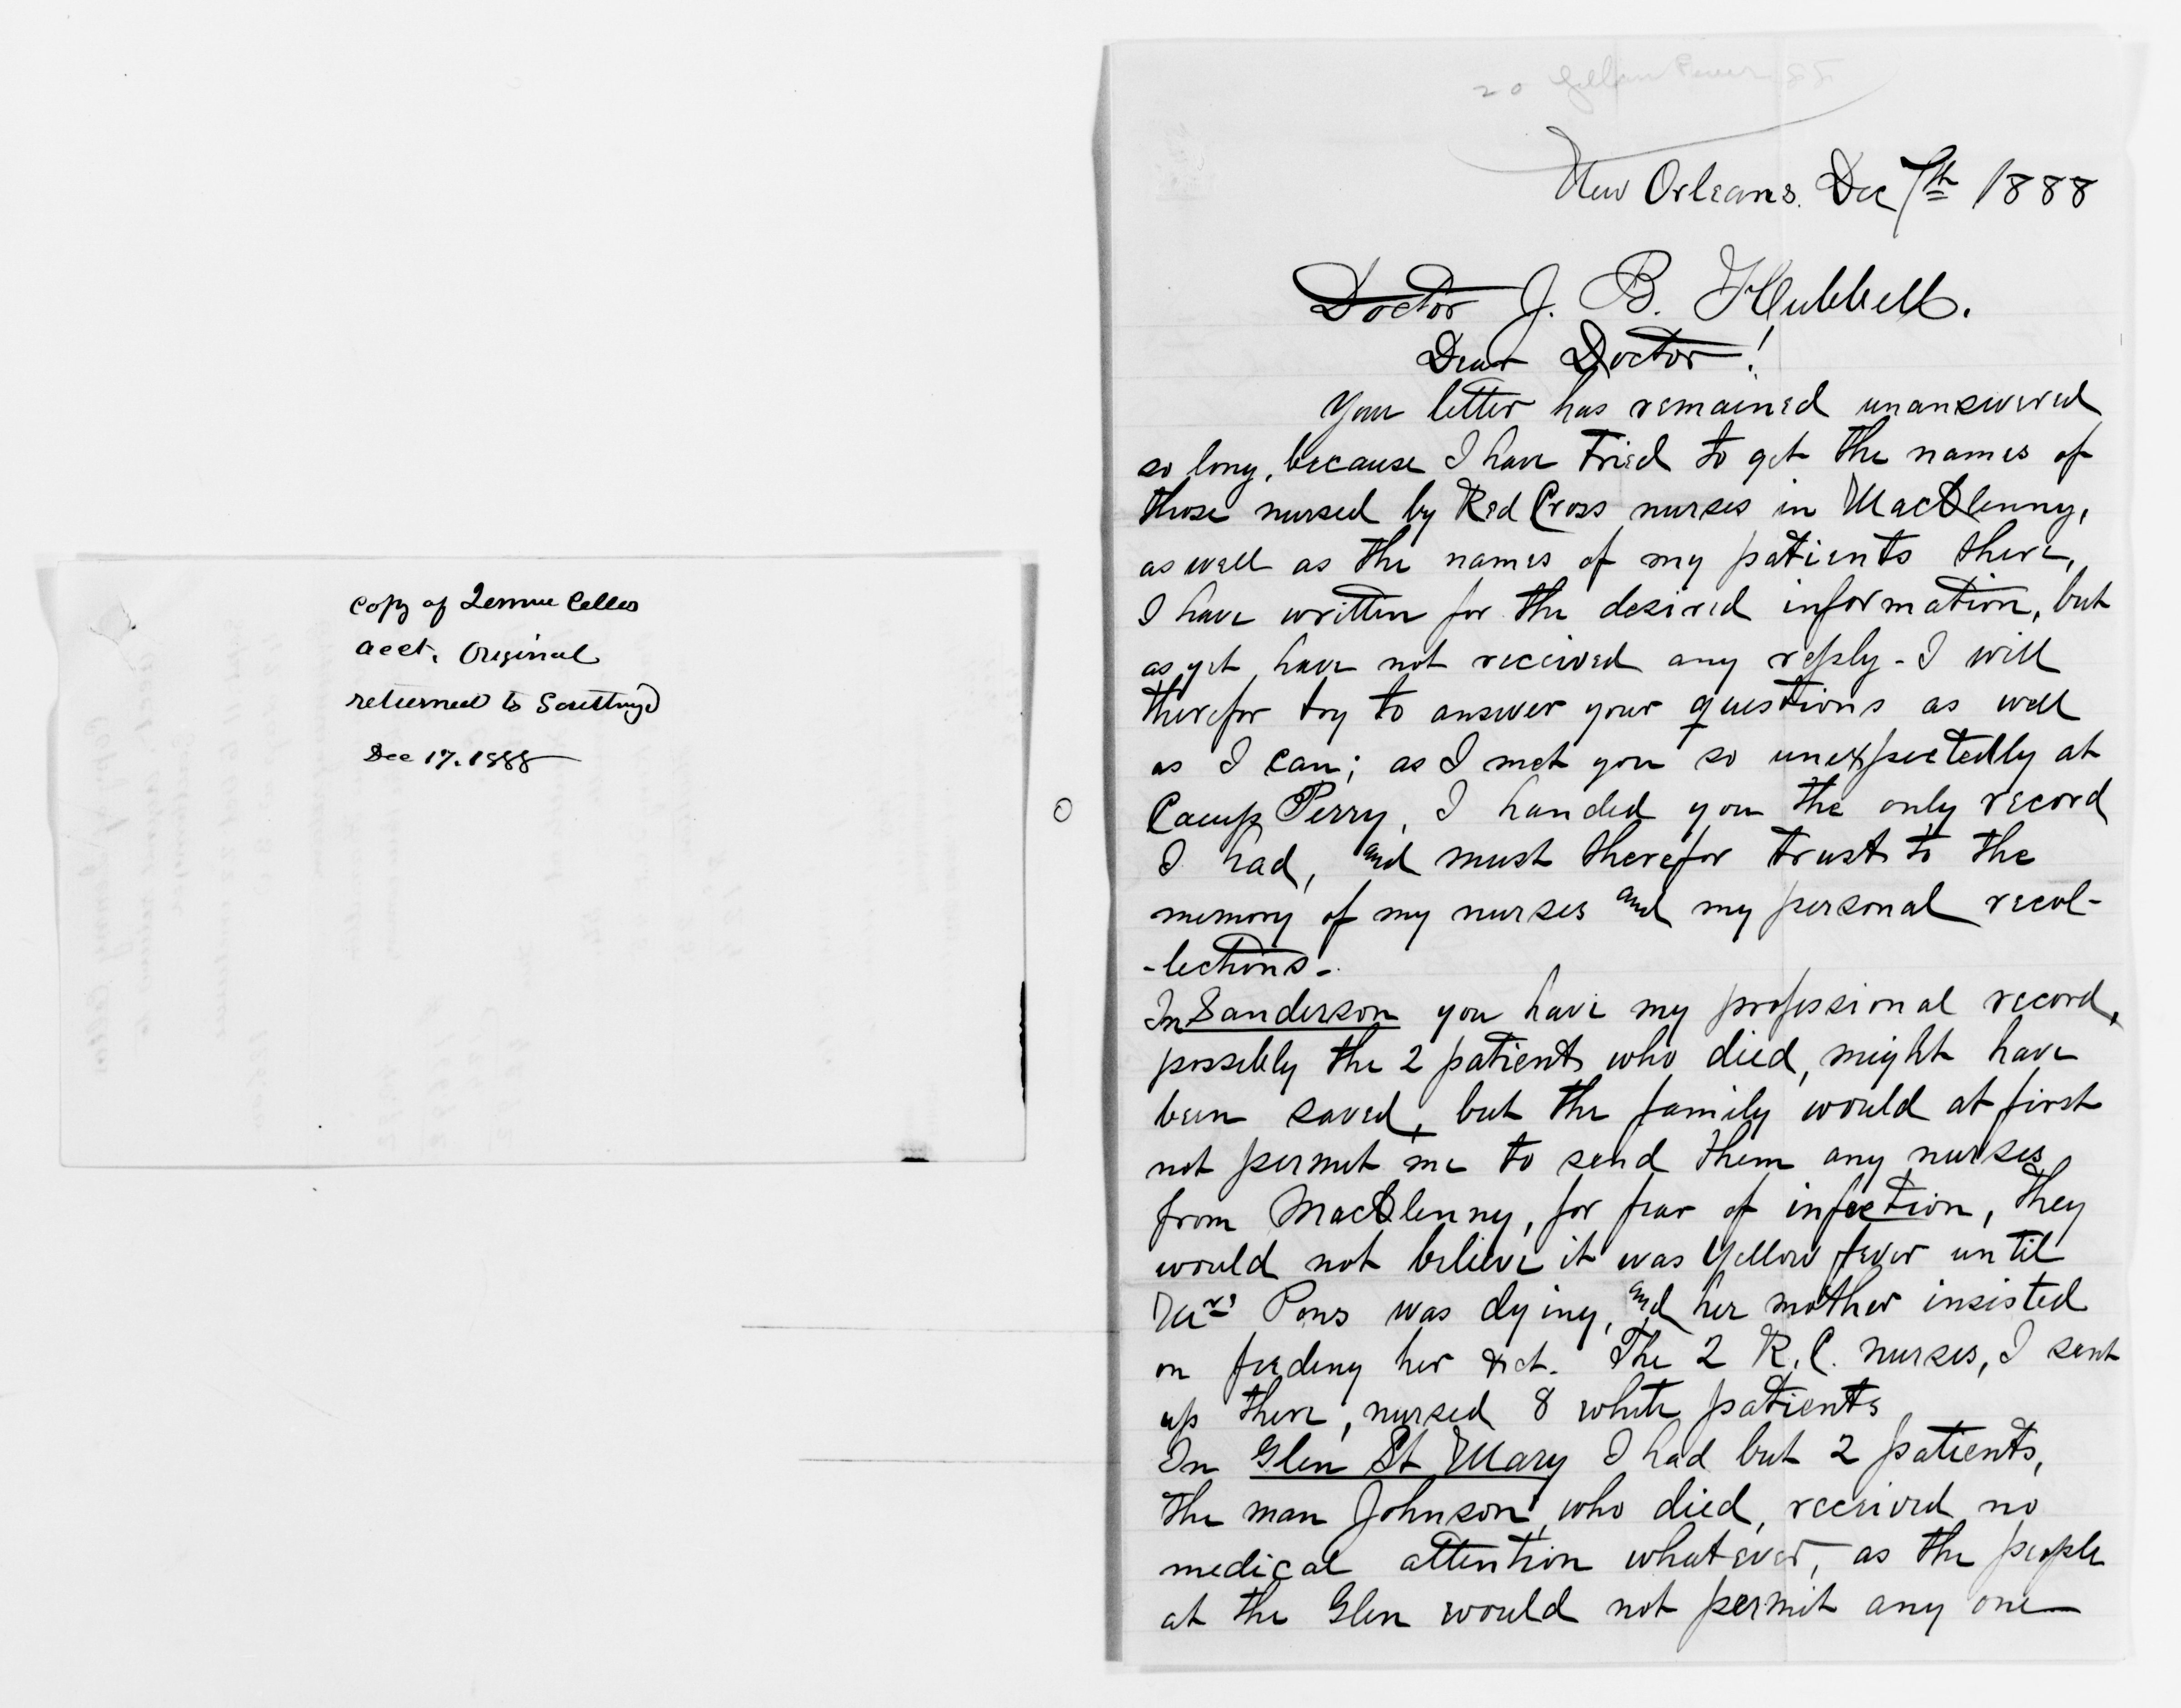 copy of
acct. Original
returned to
Dec 17. 1888
20 Yellow Fever 88
New Orleans. Dec 7th 1888
Doctor J. B. Hubbell.
Dear Doctor!
Your letter has remained unanswered
so long, because I have tried to get the names of
those nursed by Red Cross nurses in MacClenny,
as well as the names of my patients there,
I have written for the desired information, but
as yet have not received any reply - I will
therefor try to answer your questions as well
as I can; as I met you so unexpectedly at
Camp Perry, I handed you the only record
I had, and must therefor trust to the
memory of my nurses and my personal recol-
-lections -
In Sanderson you have my professional record,
possibly the 2 patients who died, might have
been saved, but the family would at first
not permit me to send them any nurses
from MacClenny, for fear of infection, they
would not believe it was Yellow fever until
Mrs Pons was dying, and her mother insisted
on feeding her &ct. The 2 R. C. nurses, I sent
up there, nursed 8 white patients
In Glen St Mary I had but 2 patients,
the man Johnson, who died, received no
medical attention whatever, as the people
at the Glen would not permit any one